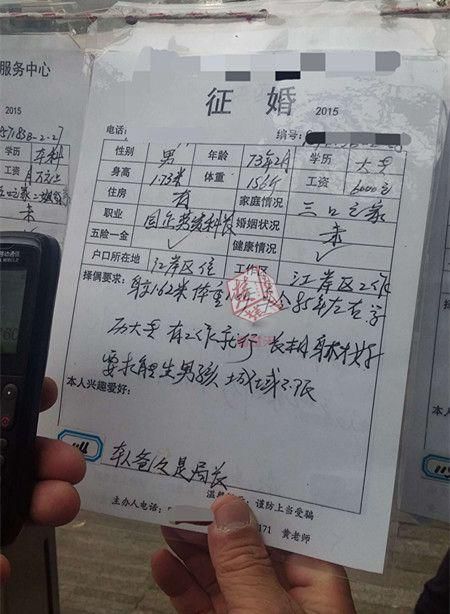 服务中心
2015
学历 本科
工资
征 婚
2015
电话: 编号:
性别 男 年龄 73年2月 学历 大专
身高 1.73米 体重 156斤 工资 6000元
住房 有 家庭情况 三口之家
职业 国企 婚姻状况 未
五险一金 ✓ 健康情况 ✓
户口所在地 江岸区住 工作区 江岸区工作
择偶要求: 身1.62米 体重 85年左右 学
历大专 有工作就行 长相身材好
要求能生男孩 城域不限
本人兴趣爱好:
本人爸爸是局长
谨防上当受骗
主办人电话: 171 黄老师